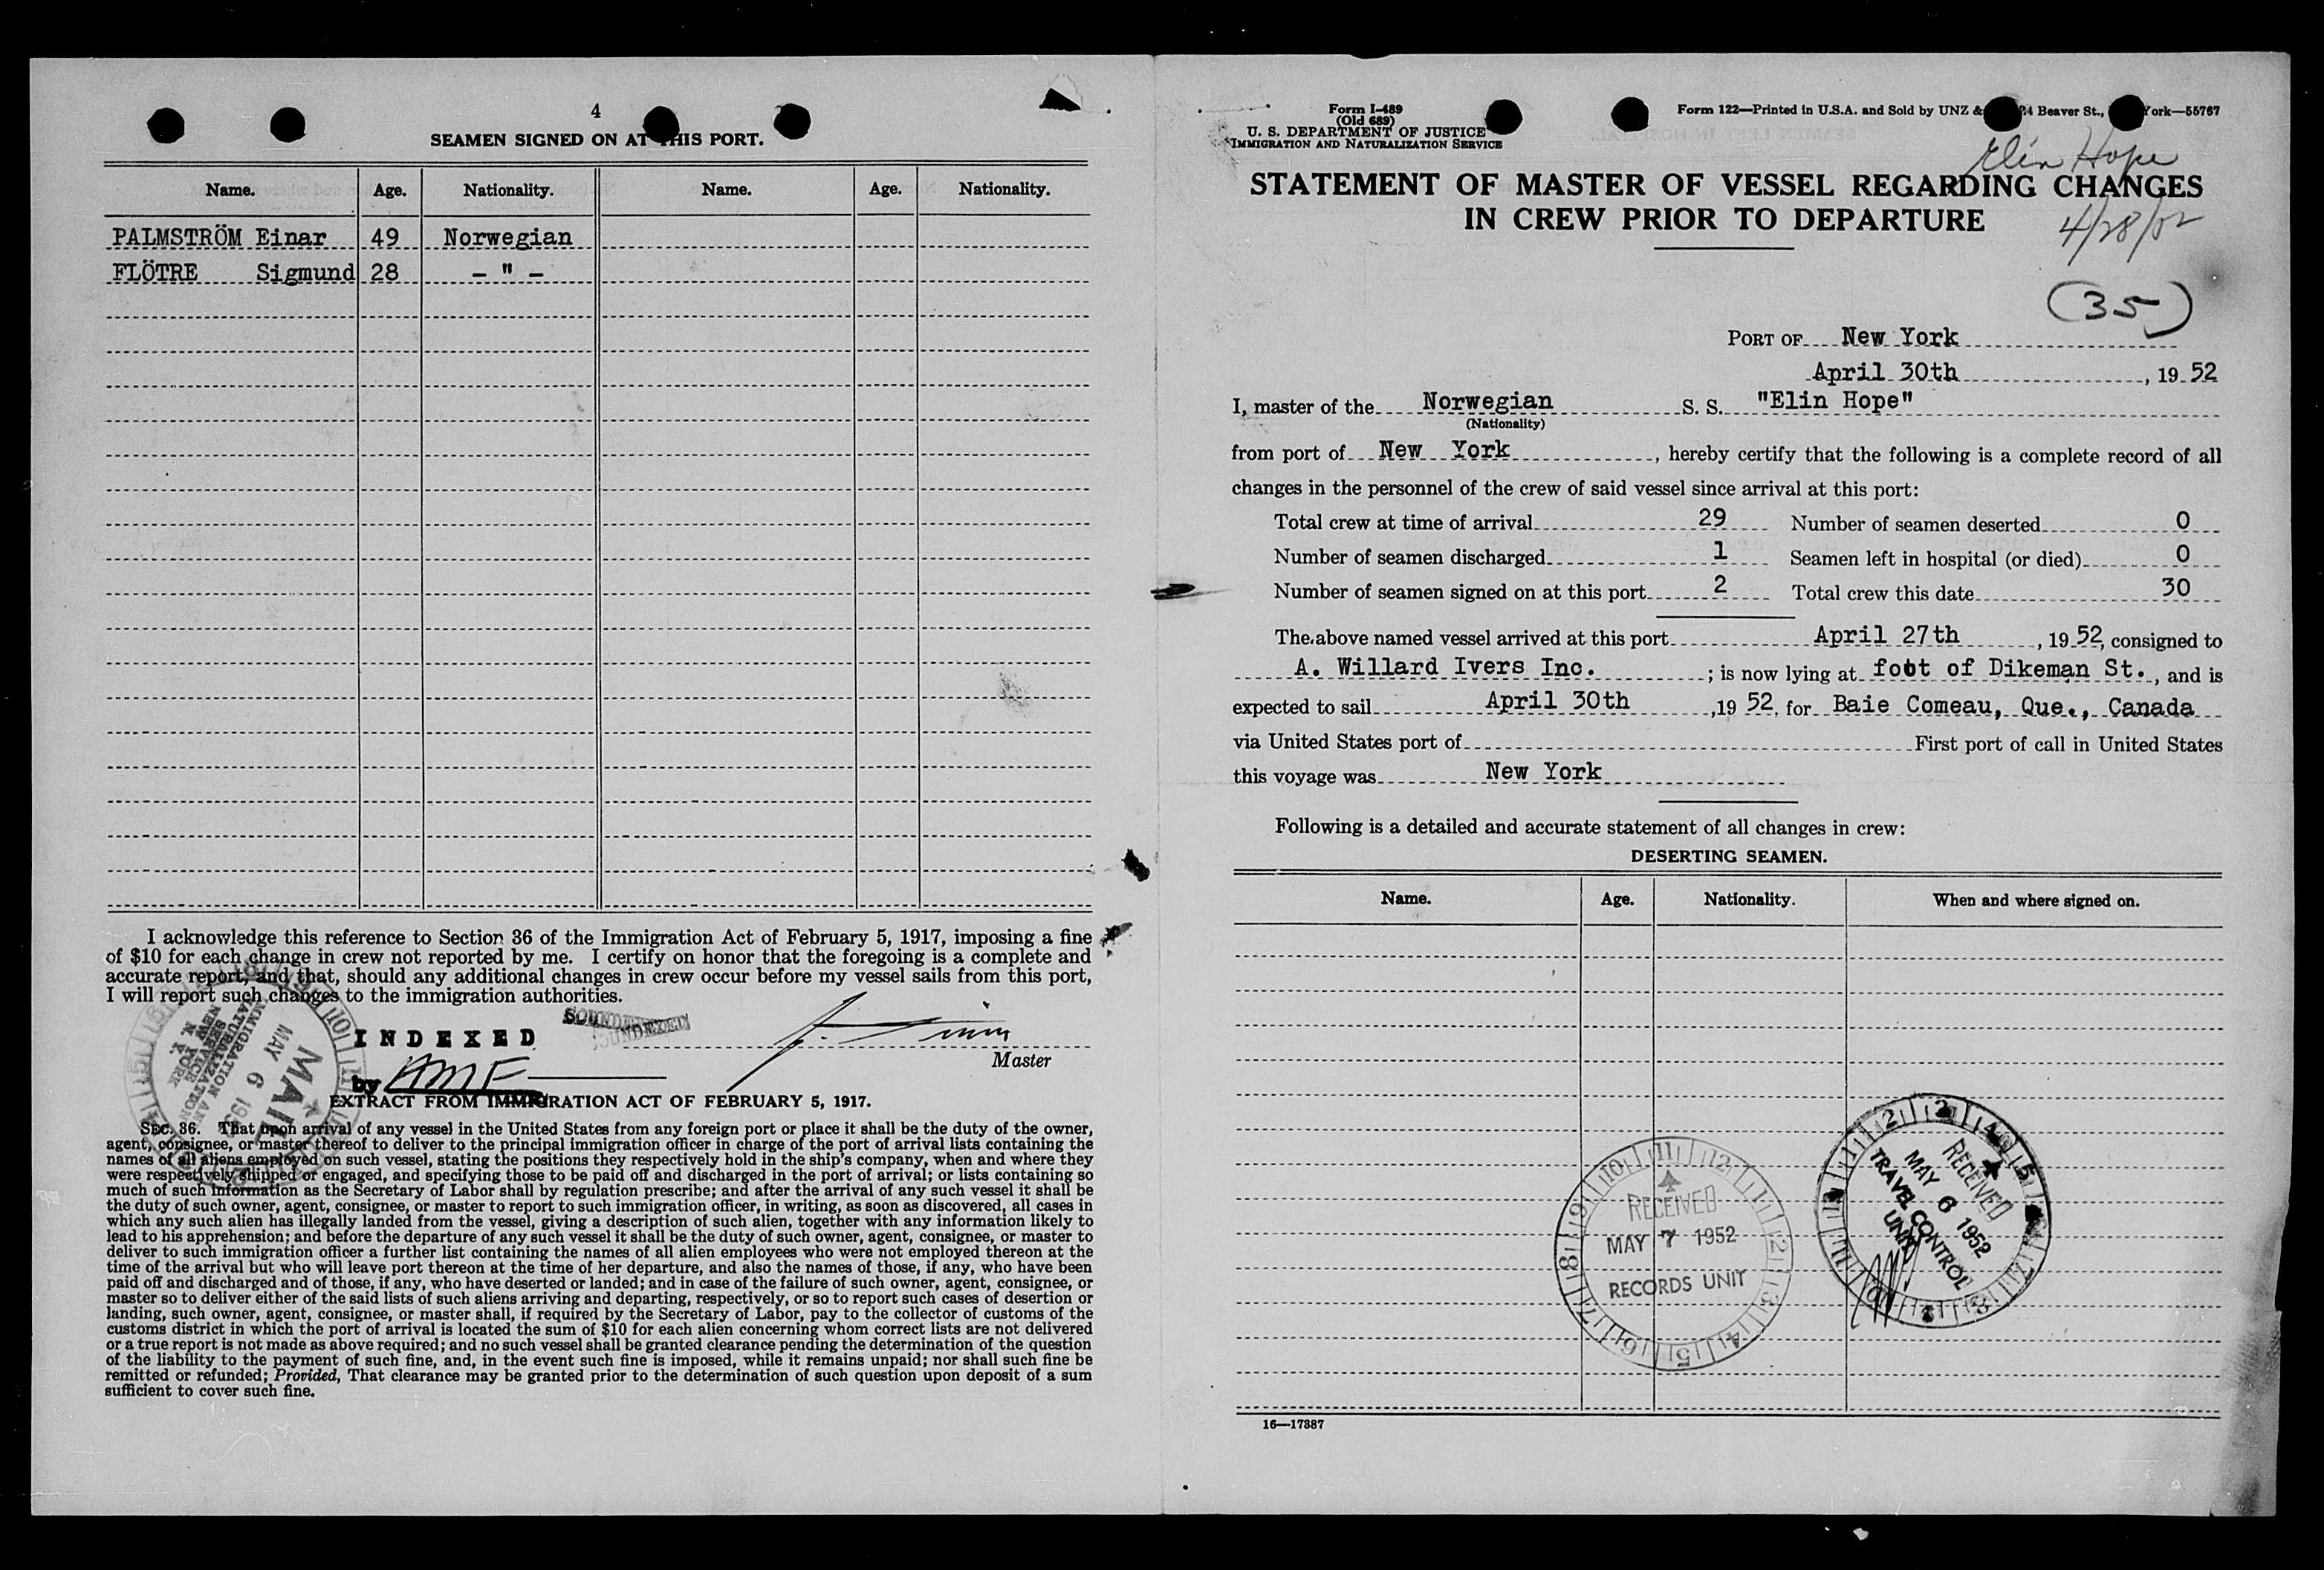 4
SEAMEN SIGNED ON AT THIS PORT.
Name. Age. Nationality. Name. Age. Nationality.
PALMSTRÖM Einar 49 Norwegian
FLÖTRE Sigmund 28 - " -
I acknowledge this reference to Section 36 of the Immigration Act of February 5, 1917, imposing a fine
of $10 for each change in crew not reported by me. I certify on honor that the foregoing is a complete and
accurate report, and that, should any additional changes in crew occur before my vessel sails from this port,
I will report such changes to the immigration authorities.
INDEXED
Master
by AMF
EXTRACT FROM IMMIGRATION ACT OF FEBRUARY 5, 1917.
SEC. 36. That upon arrival of any vessel in the United States from any foreign port or place it shall be the duty of the owner,
agent, consignee, or master thereof to deliver to the principal immigration officer in charge of the port of arrival lists containing the
names of all aliens employed on such vessel, stating the positions they respectively hold in the ship's company, when and where they
were respectively shipped or engaged, and specifying those to be paid off and discharged in the port of arrival; or lists containing so
much of such information as the Secretary of Labor shall by regulation prescribe; and after the arrival of any such vessel it shall be
the duty of such owner, agent, consignee, or master to report to such immigration officer, in writing, as soon as discovered, all cases in
which any such alien has illegally landed from the vessel, giving a description of such alien, together with any information likely to
lead to his apprehension; and before the departure of any such vessel it shall be the duty of such owner, agent, consignee, or master to
deliver to such immigration officer a further list containing the names of all alien employees who were not employed thereon at the
time of the arrival but who will leave port thereon at the time of her departure, and also the names of those, if any, who have been
paid off and discharged and of those, if any, who have deserted or landed; and in case of the failure of such owner, agent, consignee, or
master so to deliver either of the said lists of such aliens arriving and departing, respectively, or so to report such cases of desertion or
landing, such owner, agent, consignee, or master shall, if required by the Secretary of Labor, pay to the collector of customs of the
customs district in which the port of arrival is located the sum of $10 for each alien concerning whom correct lists are not delivered
or a true report is not made as above required; and no such vessel shall be granted clearance pending the determination of the question
of the liability to the payment of such fine, and, in the event such fine is imposed, while it remains unpaid; nor shall such fine be
remitted or refunded; Provided, That clearance may be granted prior to the determination of such question upon deposit of a sum
sufficient to cover such fine.
IMMIGRATION AND
NATURALIZATION
SERVICE
NEW YORK
N. Y.
MAY 6
MAIL
Form I-489
(Old 689)
U. S. DEPARTMENT OF JUSTICE
IMMIGRATION AND NATURALIZATION SERVICE
Form 122—Printed in U.S.A. and Sold by UNZ & 24 Beaver St., York—55767
Elin Hope
STATEMENT OF MASTER OF VESSEL REGARDING CHANGES
IN CREW PRIOR TO DEPARTURE
4/28/52
(35)
PORT OF New York
April 30th, 19 52
I, master of the Norwegian S. S. "Elin Hope"
(Nationality)
from port of New York, hereby certify that the following is a complete record of all
changes in the personnel of the crew of said vessel since arrival at this port:
Total crew at time of arrival 29 Number of seamen deserted 0
Number of seamen discharged 1 Seamen left in hospital (or died) 0
Number of seamen signed on at this port 2 Total crew this date 30
The above named vessel arrived at this port April 27th, 19 52, consigned to
A. Willard Ivers Inc.; is now lying at foot of Dikeman St., and is
expected to sail April 30th, 19 52, for Baie Comeau, Que., Canada
via United States port of First port of call in United States
this voyage was New York
Following is a detailed and accurate statement of all changes in crew:
DESERTING SEAMEN.
Name. Age. Nationality. When and where signed on.
RECEIVED
MAY 7 1952
RECORDS UNIT
RECEIVED
MAY 6 1952
TRAVEL CONTROL
UNIT
16—17387